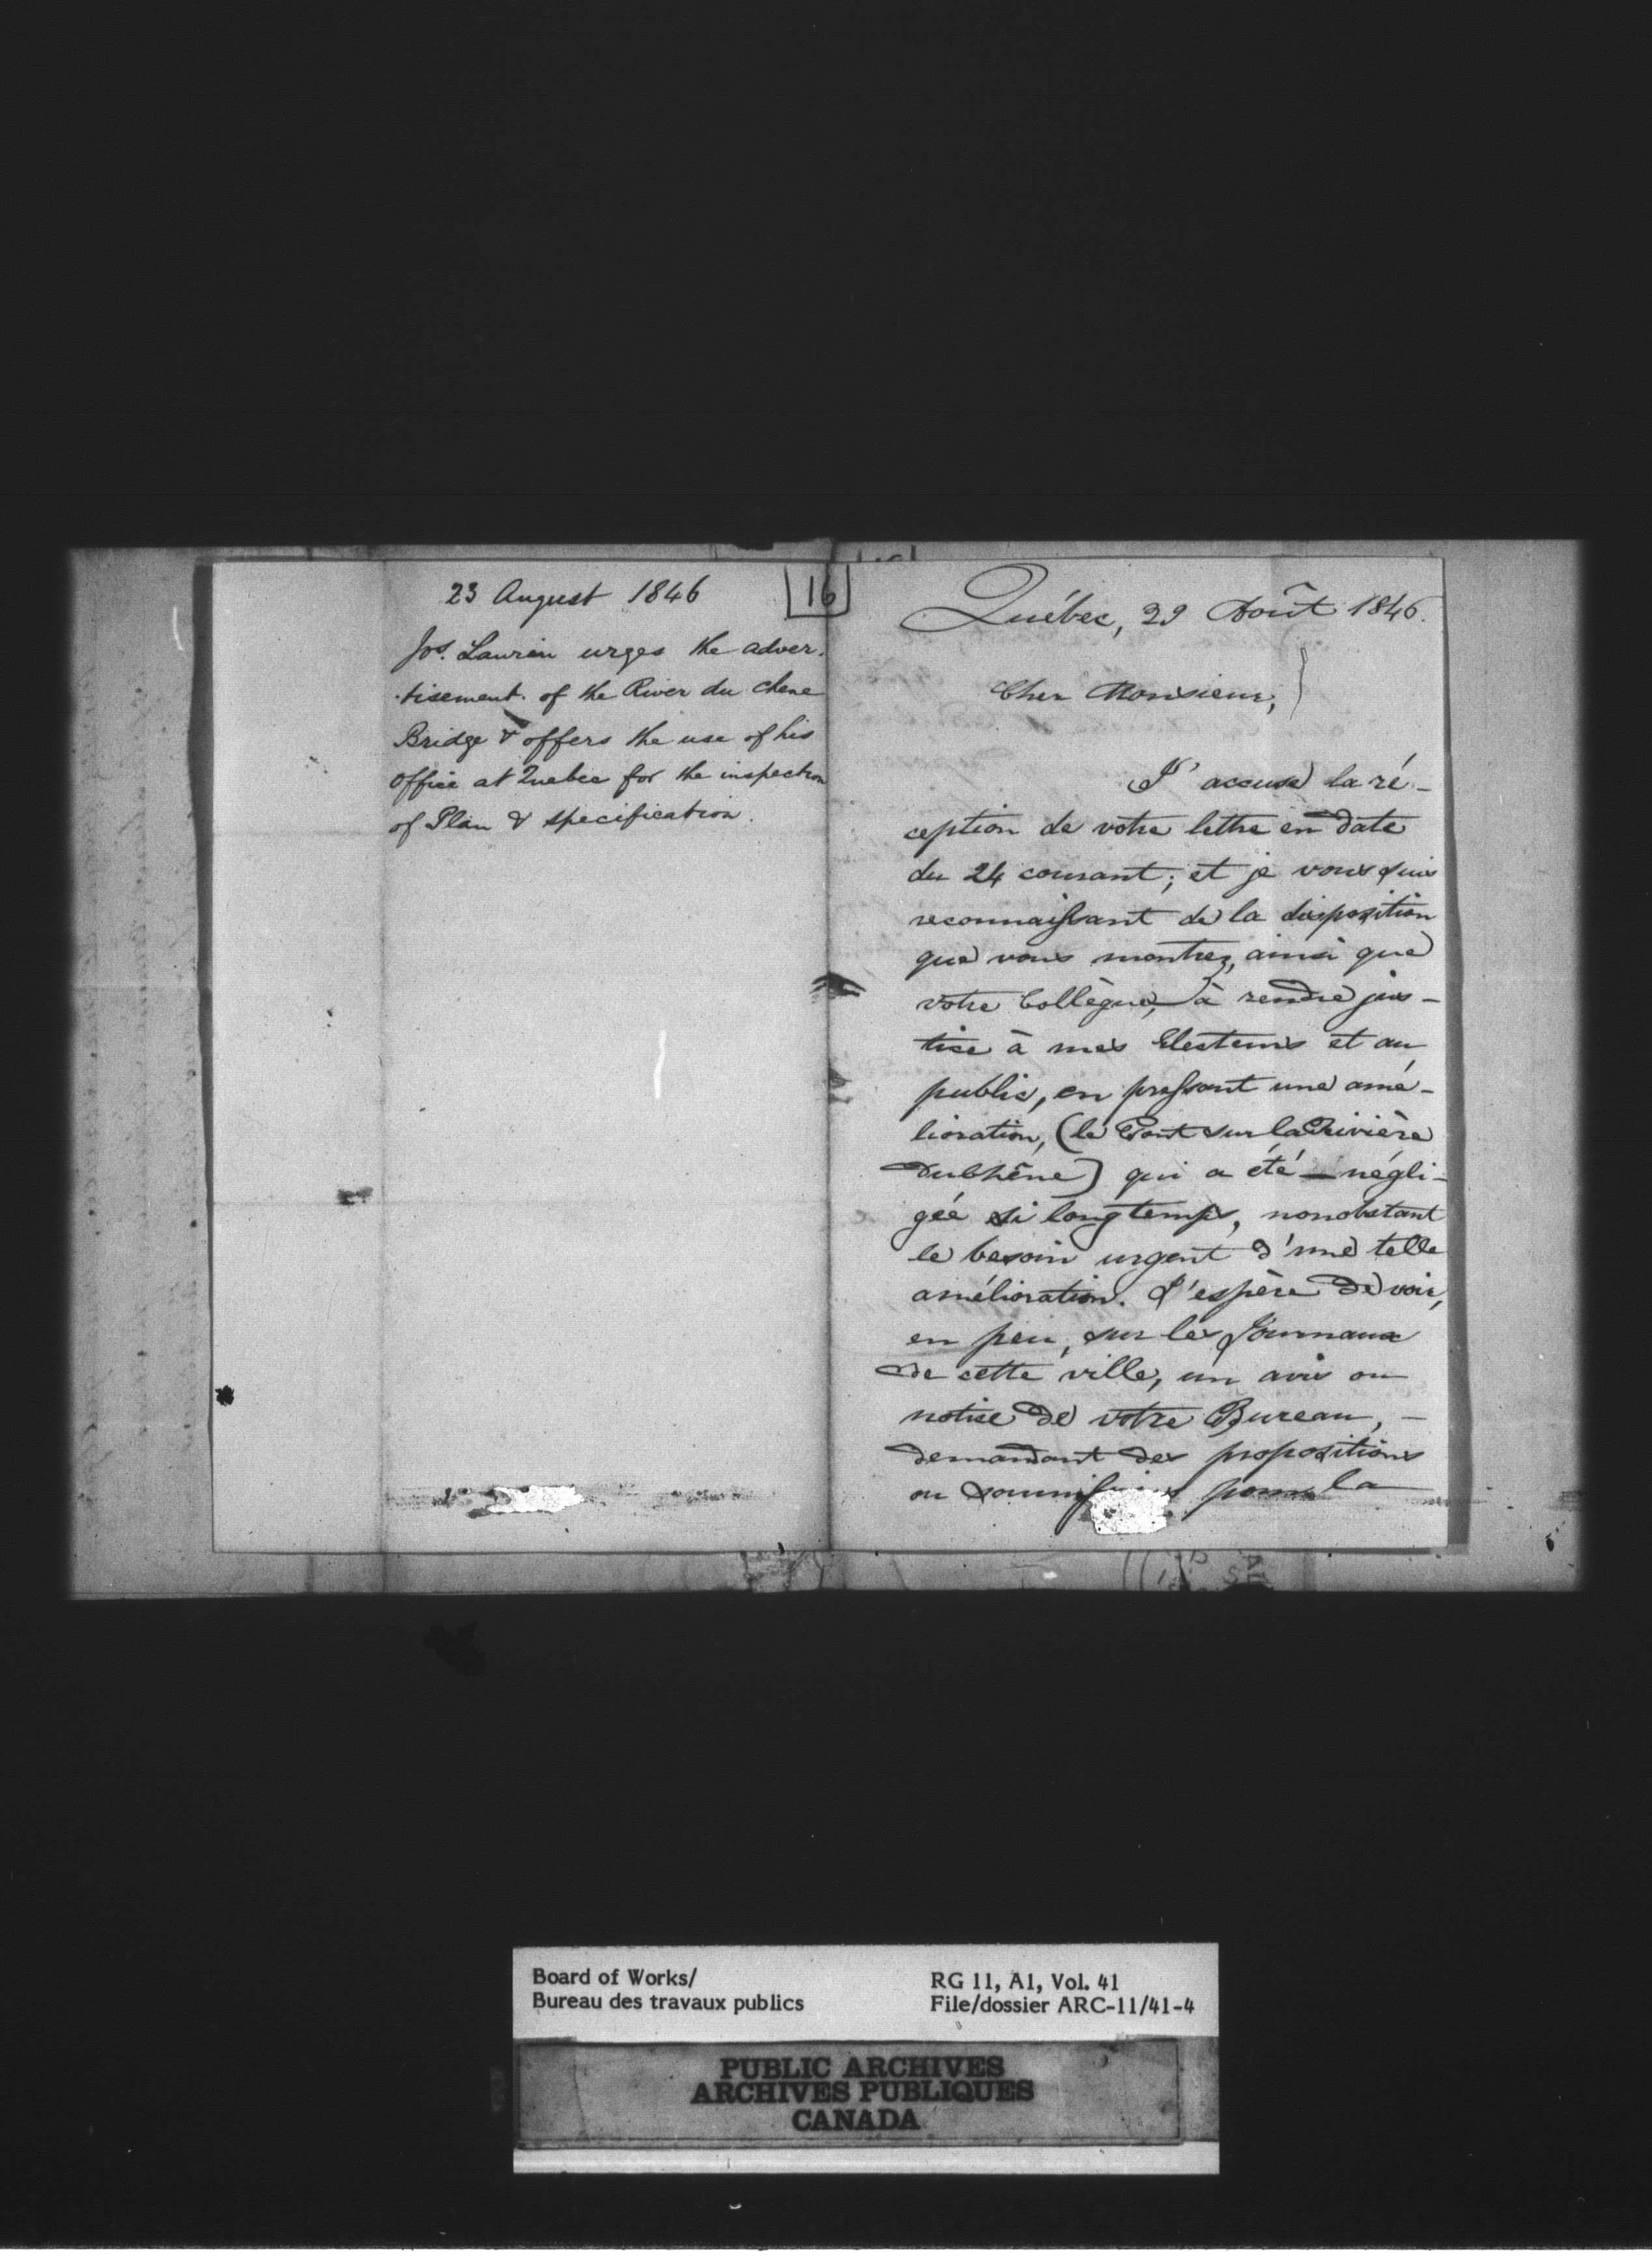 23 August 1846
16
Jos. Laurin urges the adver-
-tisement. of the River du Chene
Bridge & offers the use of his
Office at Quebec for the inspection
of Plan & specification.
Québec, 29 Août 1846.
Cher Monsieur,
J'accuse la ré-
ception de votre lettre en date
du 24 courant; et je vous suis
reconnaissant de la disposition
que vous montrez, ainsi que
votre Collègue, à rendre jus-
tice à mes Electeurs et au
public, en pressant une amé-
lioration, (le Pont sur la Rivière
DuChêne) qui a été négli-
gée si longtemps, nonobstant
le besoin urgent d'une telle
amélioration. J'espère de voir,
en peu, sur les Journaux
de cette ville, un avis ou
notice de votre Bureau,
demandant des propositions
ou pour la
Board of Works/
Bureau des travaux publics
RG 11, A1, Vol. 41
File/dossier ARC-11/41-4
PUBLIC ARCHIVES
ARCHIVES PUBLIQUES
CANADA